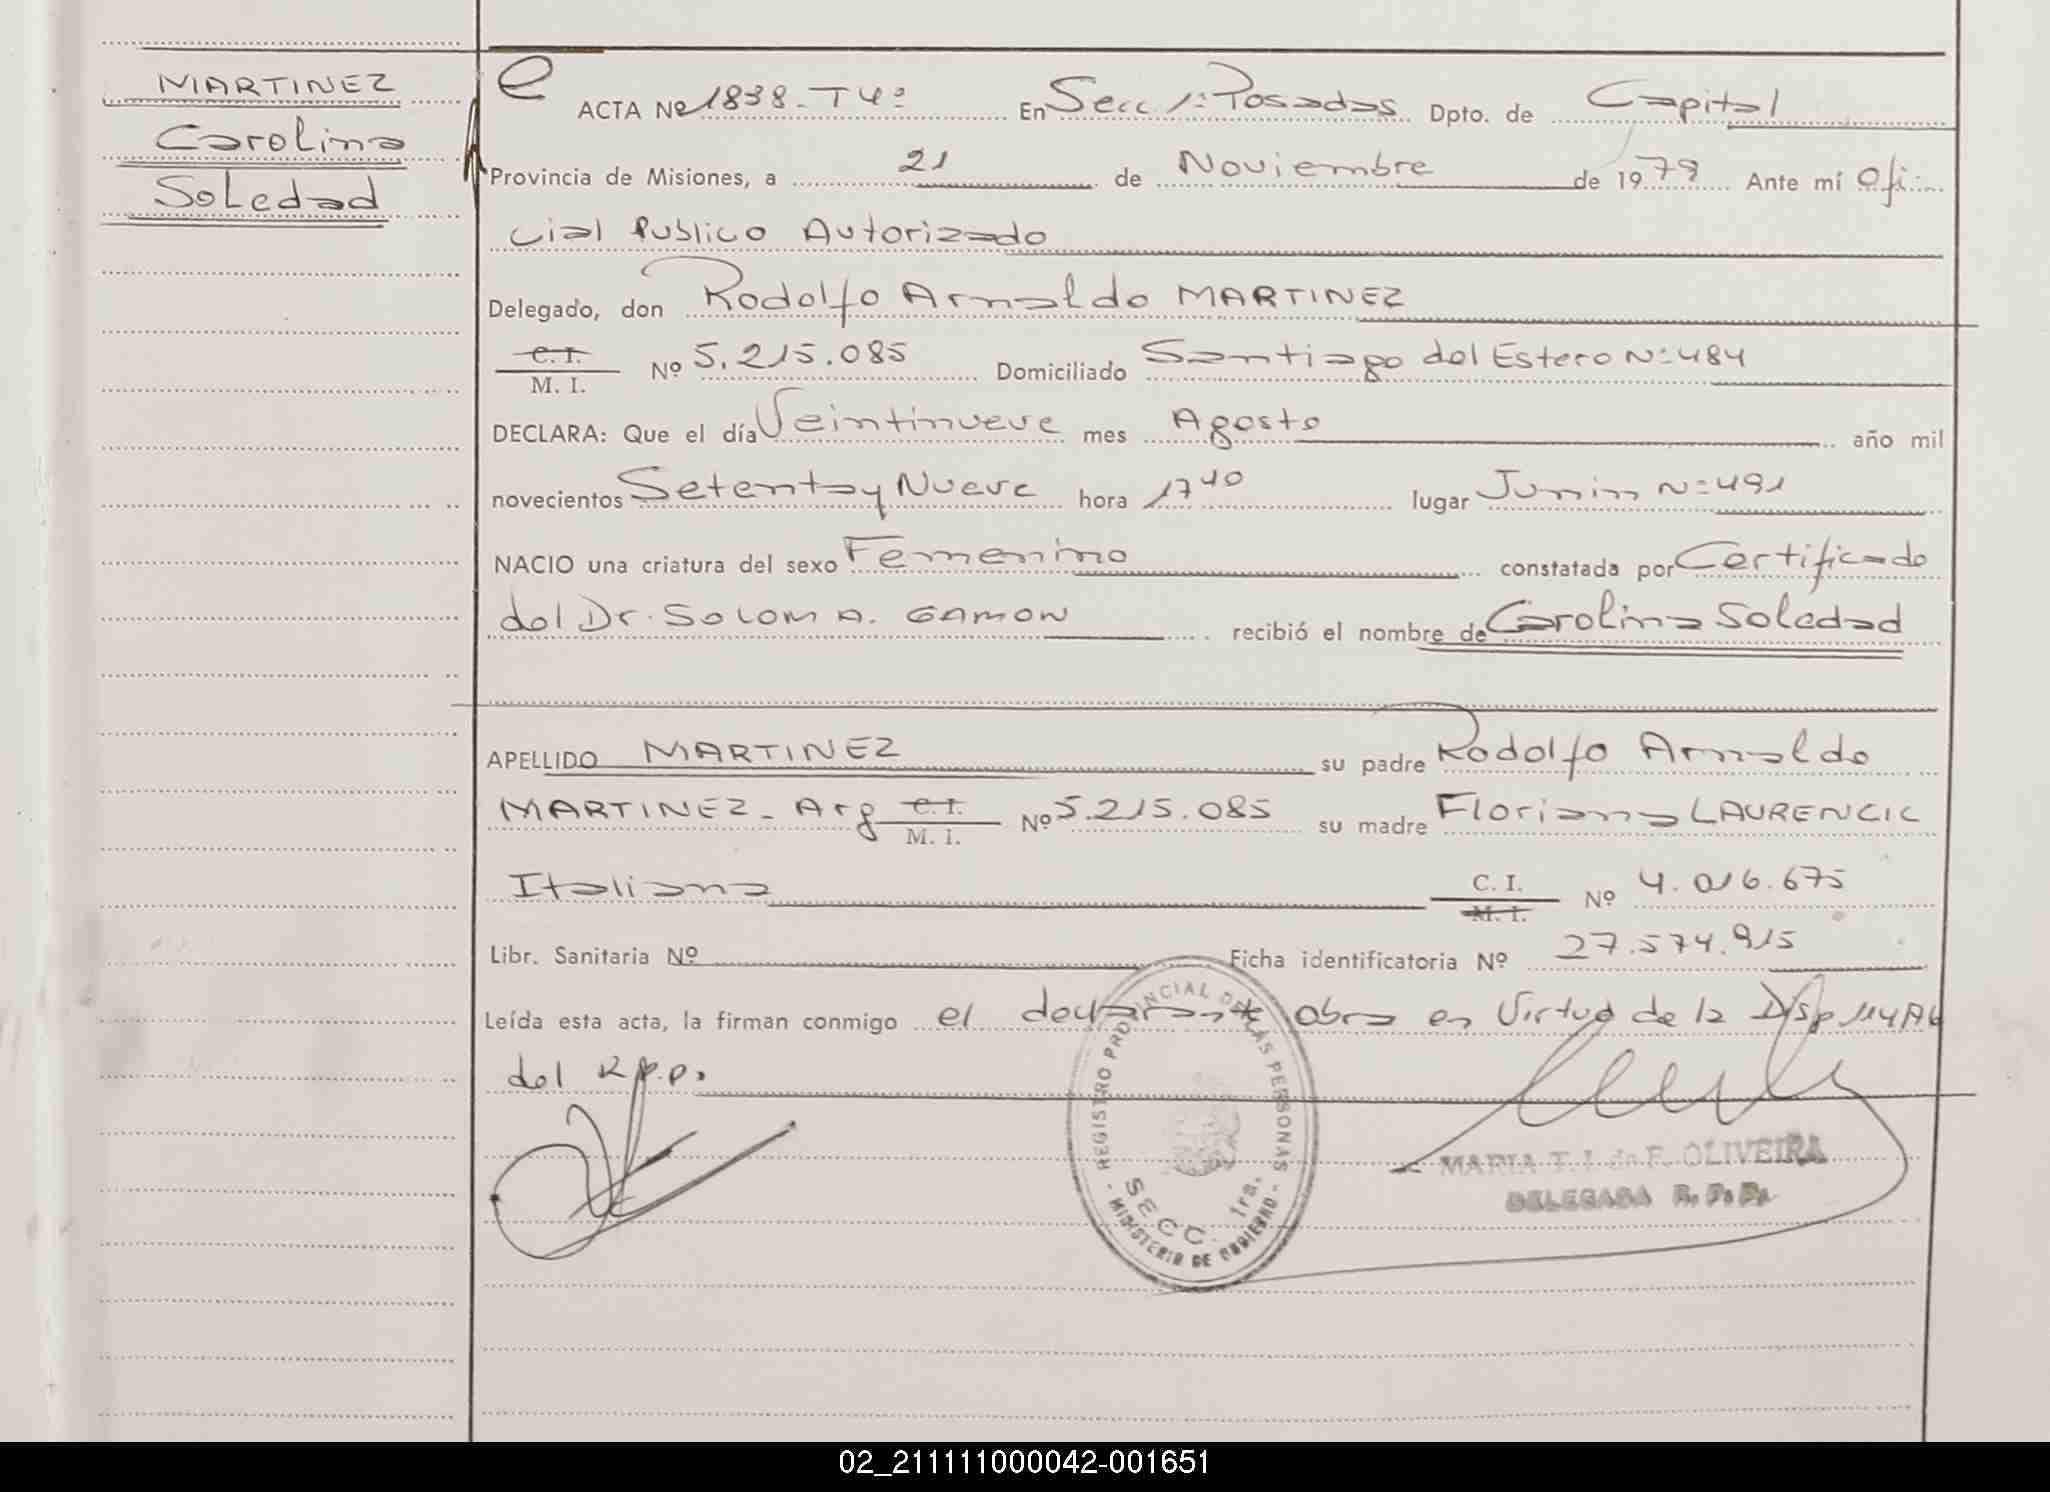 MARTINEZ
Carolina
Soledad
e ACTA Nº 1838-T4º En Secc 1ª Posadas Dpto. de Capital
Provincia de Misiones, a 21 de Noviembre de 1979 Ante mí Ofi-
cial Publico Autorizado
Delegado, don Rodolfo Arnaldo MARTINEZ
C. I.
M. I. Nº 5.215.085 Domiciliado Santiago del Estero Nº 484
DECLARA: Que el día Veintinueve mes Agosto año mil
novecientos Setenta y Nueve hora 17 40 lugar Junin Nº 491
NACIO una criatura del sexo Femenino constatada por Certificado
del Dr. SOLOM A. GAMON recibió el nombre de Carolina Soledad
APELLIDO MARTINEZ su padre Rodolfo Arnaldo
MARTINEZ - Arg C. I. M. I. Nº 5.215.085 su madre Floriana LAURENCIC
Italiana C. I. M. I. Nº 4.016.675
Libr. Sanitaria Nº Ficha identificatoria Nº 27.574.915
Leída esta acta, la firman conmigo el declarante obra en Virtud de la Disp 114
del R.p.p.
REGISTRO PROVINCIAL DE LAS PERSONAS
SECC. 1ra.
- MINISTERIO DE GOBIERNO -
MARIA T. I. de F. OLIVEIRA
DELEGADA R. P. P.
02_211111000042-001651